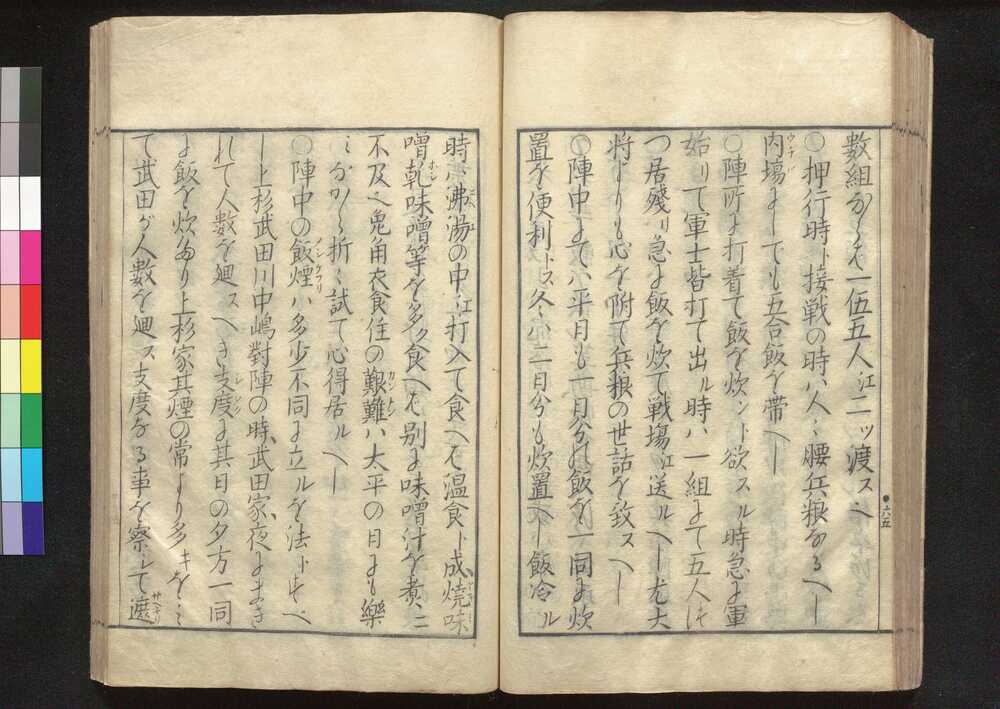 数組ならば一伍五人江二ツ渡スベ
〇押行時ト接戦の時ハ人々腰兵粮なるべし
内場にしても五合飯を帯べし
〇陣所に打着て飯を炊ント欲スル時急に軍
始りて軍士皆打て出ル時ハ一組にて五人ほ
つ居残リ急に飯を炊て戦場江送ルべし尤大
将よりも心を附て兵粮の世話を致スべし
〇陣中にてハ平日も一日分の飯を一同に炊
置を便利トス冬ハ二日分も炊置べし飯冷ル
時ハ沸湯の中江打入て食べば温食ト成焼味
噌乾味噌等を多ク食べば別に味噌汁を煮ニ
不及べ兎角衣食住の艱難ハ太平の日にも樂
ミながら折々試て心得居ルべし
〇陣中の飯煙ハ多少不同に立ルを法トすべ
し上杉武田川中嶋對陣の時武田家夜にまき
れて人数を廻スべき支度に其日の夕方一同
に飯を炊たり上杉家其煙の常より多キをミ
て武田が人数を廻ス支度なる事を察して遮
六五